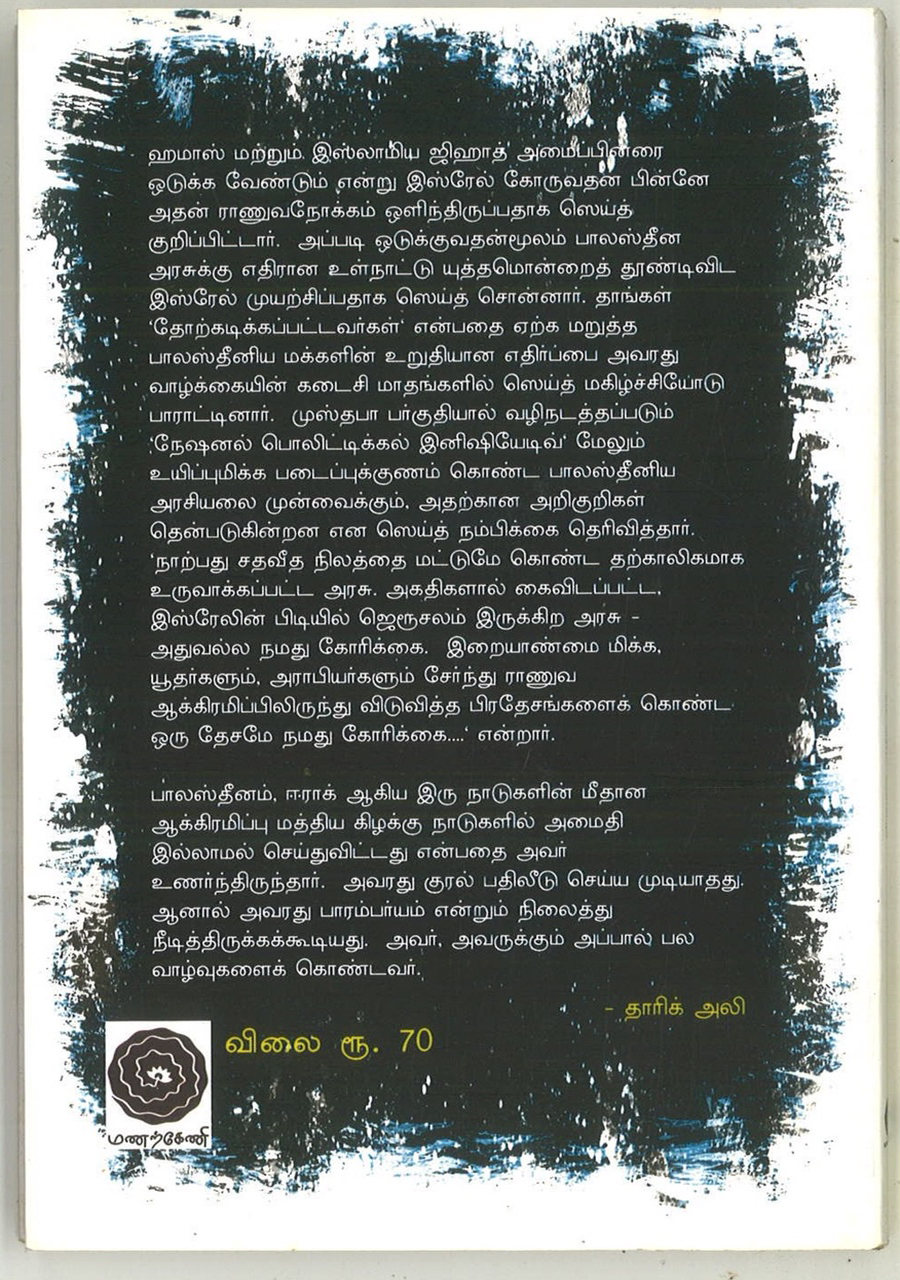 ஹமாஸ் மற்றும் இஸ்லாமிய ஜிஹாத் அமைப்பினரை
ஒடுக்க வேண்டும் என்று இஸ்ரேல் கோருவதன் பின்னே
அதன் ராணுவநோக்கம் ஒளிந்திருப்பதாக ஸெய்த்
குறிப்பிட்டார். அப்படி ஒடுக்குவதன்மூலம் பாலஸ்தீன
அரசுக்கு எதிரான உள்நாட்டு யுத்தமொன்றைத் தூண்டிவிட
இஸ்ரேல் முயற்சிப்பதாக ஸெய்த் சொன்னார். தாங்கள்
‘தோற்கடிக்கப்பட்டவர்கள்‘ என்பதை ஏற்க மறுத்த
பாலஸ்தீனிய மக்களின் உறுதியான எதிர்ப்பை அவரது
வாழ்க்கையின் கடைசி மாதங்களில் ஸெய்த் மகிழ்ச்சியோடு
பாராட்டினார். முஸ்தபா பர்குதியால் வழிநடத்தப்படும்
‘நேஷனல் பொலிட்டிக்கல் இனிஷியேடிவ்‘ மேலும்
உயிப்புமிக்க படைப்புக்குணம் கொண்ட பாலஸ்தீனிய
அரசியலை முன்வைக்கும், அதற்கான அறிகுறிகள்
தென்படுகின்றன என ஸெய்த் நம்பிக்கை தெரிவித்தார்.
‘நாற்பது சதவீத நிலத்தை மட்டுமே கொண்ட தற்காலிகமாக
உருவாக்கப்பட்ட அரசு. அகதிகளால் கைவிடப்பட்ட,
இஸ்ரேலின் பிடியில் ஜெரூசலம் இருக்கிற அரசு -
அதுவல்ல நமது கோரிக்கை. இறையாண்மை மிக்க,
யூதர்களும், அராபியர்களும் சேர்ந்து ராணுவ
ஆக்கிரமிப்பிலிருந்து விடுவித்த பிரதேசங்களைக் கொண்ட
ஒரு தேசமே நமது கோரிக்கை....‘ என்றார்.
பாலஸ்தீனம், ஈராக் ஆகிய இரு நாடுகளின் மீதான
ஆக்கிரமிப்பு மத்திய கிழக்கு நாடுகளில் அமைதி
இல்லாமல் செய்துவிட்டது என்பதை அவர்
உணர்ந்திருந்தார். அவரது குரல் பதிலீடு செய்ய முடியாதது.
ஆனால் அவரது பாரம்பர்யம் என்றும் நிலைத்து
நீடித்திருக்கக்கூடியது. அவர், அவருக்கும் அப்பால் பல
வாழ்வுகளைக் கொண்டவர்.
- தாரிக் அலி
விலை ரூ. 70
மணற்கேணி